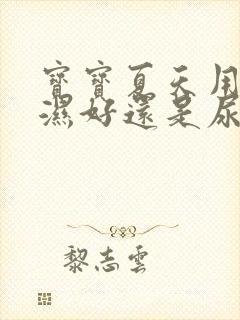 寶寶夏天用
濕好還是尿
黎志雲